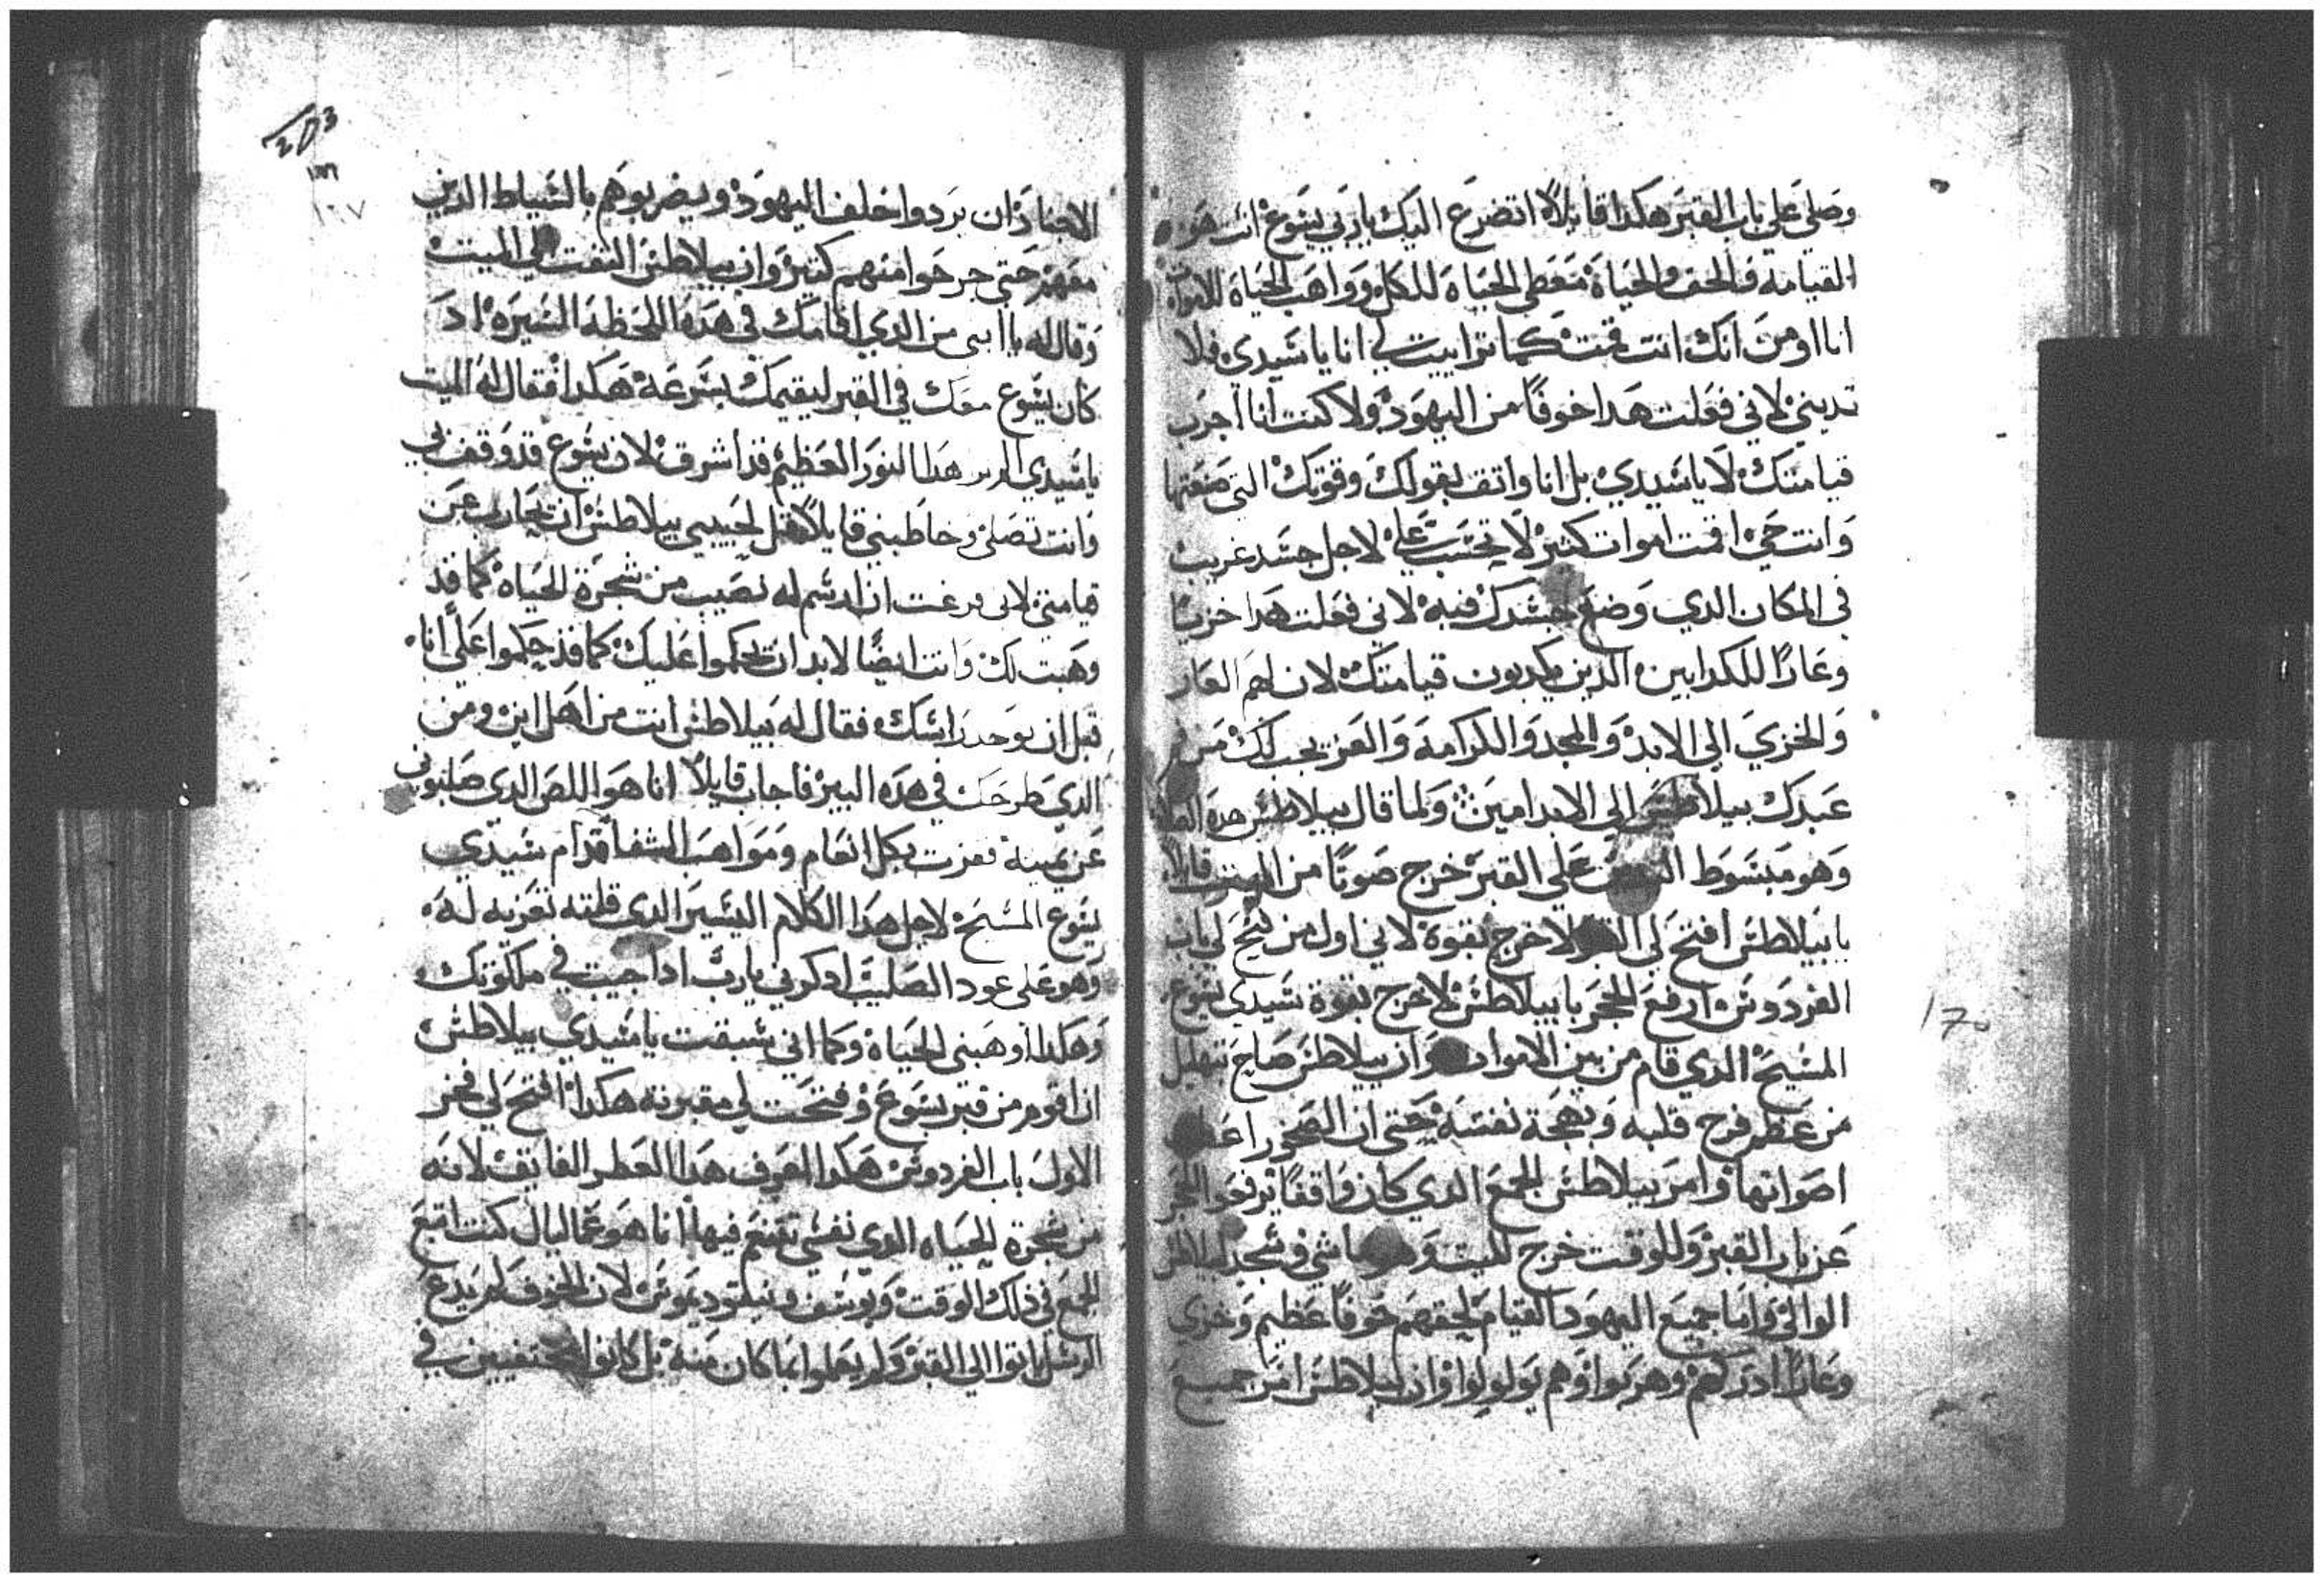 وصلي علي باب القبر هكدا قايلاً اتضرع اليك ياربي يسوع انت هو
القيامه والحق والحياة معطي الحياة للكل وواهب الحياة للاموات
انا اومن انك انت قمت كما تراييت لي انا يا سيدي فلا
تدينني لاني فعلت هدا خوفًا من اليهود ولا كنت انا اجرب
قيامتك لا يا سيدي بل انا واتق بقولك وقوتك التي صنعتها
وانت حي اقمت اموات كتير لا تحسب علي لاجل جسد غريب
في المكان الدي وضع جسدك فيه لاني فعلت هدا خزيًا
وعارًا للكدابين الدين يكدبون قيامتك لان لهم العار
والخزي الي الابد والمجد والكرامه والعز يجب لك من فم
عبدك بيلاطس الي الابد امين ولما قال بيلاطس هده
وهو مبسوط علي القبر خرج صوتًا من الميت قايلاً
يا بيلاطس افتح لي لاخرج بقوة لاني اول من فتح لي باب
الفردوس ارفع الحجر يا بيلاطس لاخرج بقوة سيدي يسوع
المسيح الدي قام من بين الاموات وان بيلاطس صاح بتهليل
من عظم فرح قلبه وبهجة نفسه حتي ان الصخور
اصواتها وامر بيلاطس الجمع الدي كان واقفًا يرفعوا الحجر
عن باب القبر وللوقت خرج الميت وهو ماشي وسجد لبيلاطس
الوالي واما جميع اليهود القيام لحقهم خوفًا عظيم وخزي
وعارًا ادركهم وهربوا وهم يولولوا وان بيلاطس امر جميع
203
١٦٧
170
الاجناد ان يردوا خلف اليهود ويضربوهم بالسياط الدين
معهم حتي جرحوا منهم كتير وان بيلاطس التفت الي الميت
وقال له يا ابني من الدي اقامك في هده اللحظه اليسيره اد
كان يسوع معك في القبر ليقيمك بسرعة هكدا فقال له الميت
يا سيدي هدا النور العظيم قد اشرق لان يسوع قد وقف بي
وانت تصلي وخاطبني قايلاً قل لحبيبي بيلاطس ان يحارب عن
قيامتي لاني ارسم له نصيب من شجرة الحياة كما قد
وهبت لك وانت ايضًا لابد ان يحكموا عليك كما قد حكموا علي انا
قبل ان يوخد راسك فقال له بيلاطس انت من اهل اين ومن
الدي طرحك في هده البير فاجاب قايلاً انا هو اللص الدي صلبوني
عن يمينه ففزت بكل انعام ومواهب الشفا قدام سيدي
يسوع المسيح لاجل هدا الكلام اليسير الدي قلته تعزيه له
وهو علي عود الصليب ادكرني يارب ادا جيت في ملكوتك
وهكدا وهبني الحياة وكما اني سبقت يا سيدي بيلاطس
ان اقوم من قبر يسوع وفتحت لي مقبرته هكدا افتح لي
الاول باب الفردوس هكدا اعرف هدا العطر الفايق لانه
من شجرة الحياه الدي نفسي تتنعم فيها انا هو كنت اتبع
الجمع في دلك الوقت ويوسف ونيقوديموس لان الخوف لم يدع
الرسل ياتوا الي القبر ولم يعلموا بما كان منه بل كانوا مختفيين في